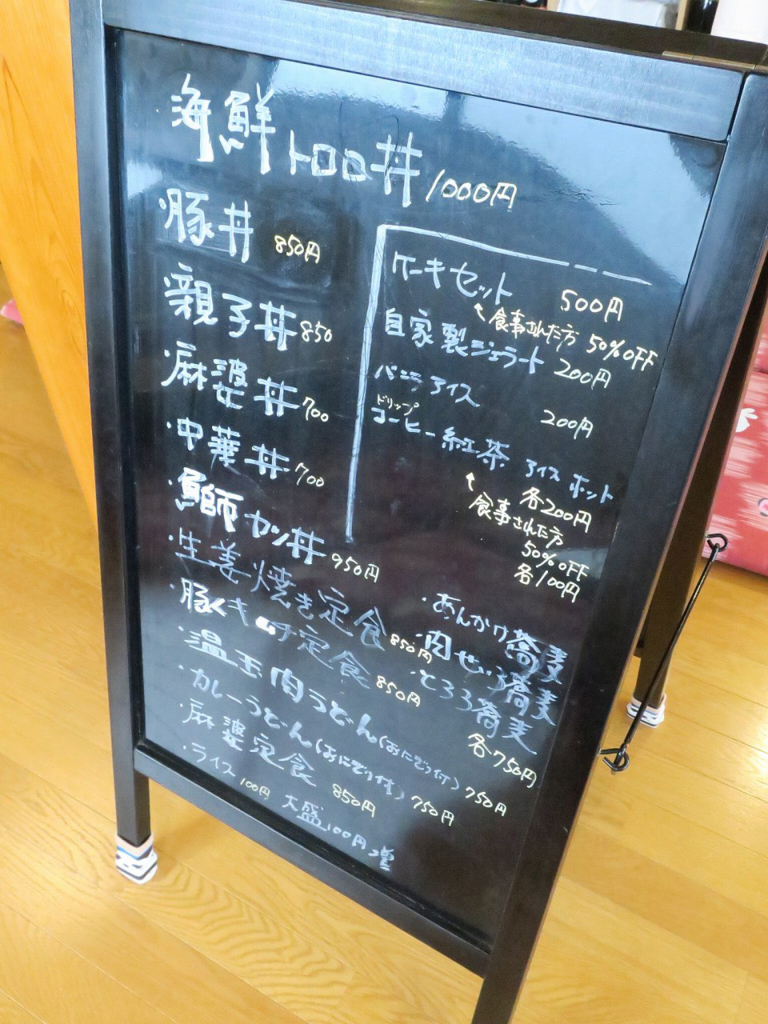 海鮮トロロ丼 1000円
・豚丼 850円
・親子丼 850
・麻婆丼 700
・中華丼 700
・鰤カツ丼 950円
・生姜焼き定食 850円
・豚キムチ定食 850円
・温玉肉うどん(おにぎり付) 750円
・カレーうどん(おにぎり付) 750円
・麻婆定食 850円
・ライス 100円 大盛100円増
ケーキセット 500円
↖食事された方 50%OFF
自家製ジェラート 200円
バニラアイス 200円
ドリップ
コーヒー 紅茶 アイス ホット
各200円
↖食事された方
50%OFF
各100円
・あんかけ蕎麦
・肉せいろ蕎麦
・とろろ蕎麦
各750円